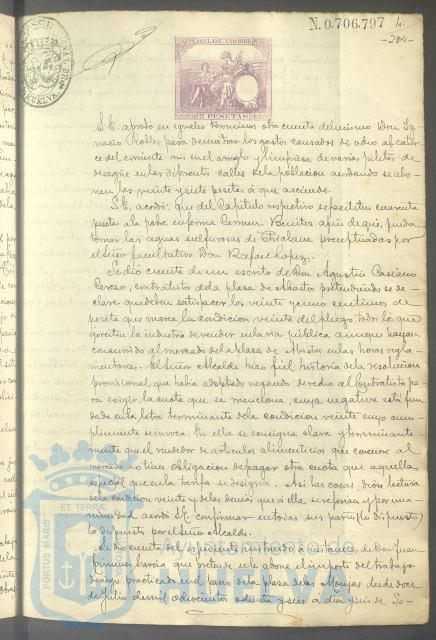 N. 0.706.797
-294-
10ª CLASE. AÑO 1886
2 PESETAS
S.E. aprobó en iguales terminos otra cuenta del mismo Don Ig-
nacio Robles para demostrar los gastos causados de ocho al cator-
ce del corriente mes en el arreglo y limpieza de varias piletas de
desagüe en las diferentes calles de la población acordando se abo-
nen las veinte y siete pesetas á que asciende.
S.E. acordó: que del Capitulo respectivo se faciliten cuarenta
pesetas á la pobre enferma Carmen Benitez afin de que pueda
tomar las aguas sulfurosas de Chiclana preceptuadas por
el Señor facultativo Don Rafael Lopez.
Se dió cuenta de un escrito de Don Agustin Casiano
Cerezo, contratista de la plaza de abastos pretendiendo se de-
clare que deben satisfacer los veinte y cinco centimos de
peseta que marca la condicion veinte del pliego todos los que
ejerciten la industria de vender en la via pública aunque hayan
concurrido al mercado de la plaza de Abastos en las horas regla-
mentarias. El Señor Alcalde hizo fiel historia de la resolucion
provisional que habia adoptado negando derecho al Contratista pa-
ra exigir la cuota que se menciona, cuya negativa está fun-
dada en la letra terminante de la condicion veinte cuyo cum-
plimiento se invoca. En ella se consigna clara y terminante
mente que el vendedor de articulos alimenticios que concurre al
mercado no tiene obligacion de pagar otra cuota que aquella
especial que en la tarifa se designa. Asi las cosas, dióse lectura
de la condicion veinte y de las demás que á ella se refieren y por una-
nimidad acordó S.E. confirmar en todas sus partes (lo dispuesto)
lo dispuesto por el Señor Alcalde.
Se dió cuenta del expediente instruido á instancia de Don Juan
Jimenez Garcia que pretende se le abone el importe del trabajo
de riego practicado en el paseo de la plaza de las Monjas desde doce
de Julio de mil ochocientos ochenta y seis á diez y seis de Se-
Ayuntamiento de
HUELVA
PORTUS MARIS
ET TERRAE